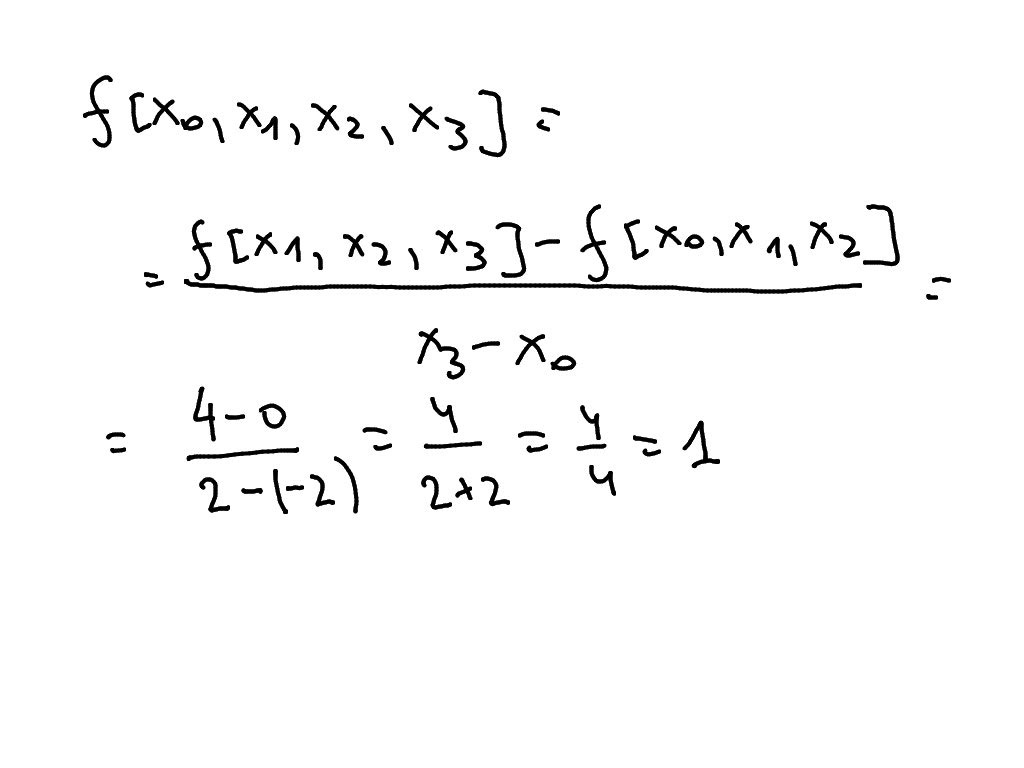 f[x₀, x₁, x₂, x₃] =
= \frac{f[x₁, x₂, x₃] - f[x₀, x₁, x₂]}{x₃ - x₀} =
= \frac{4-0}{2-(-2)} = \frac{4}{2+2} = \frac{4}{4} = 1